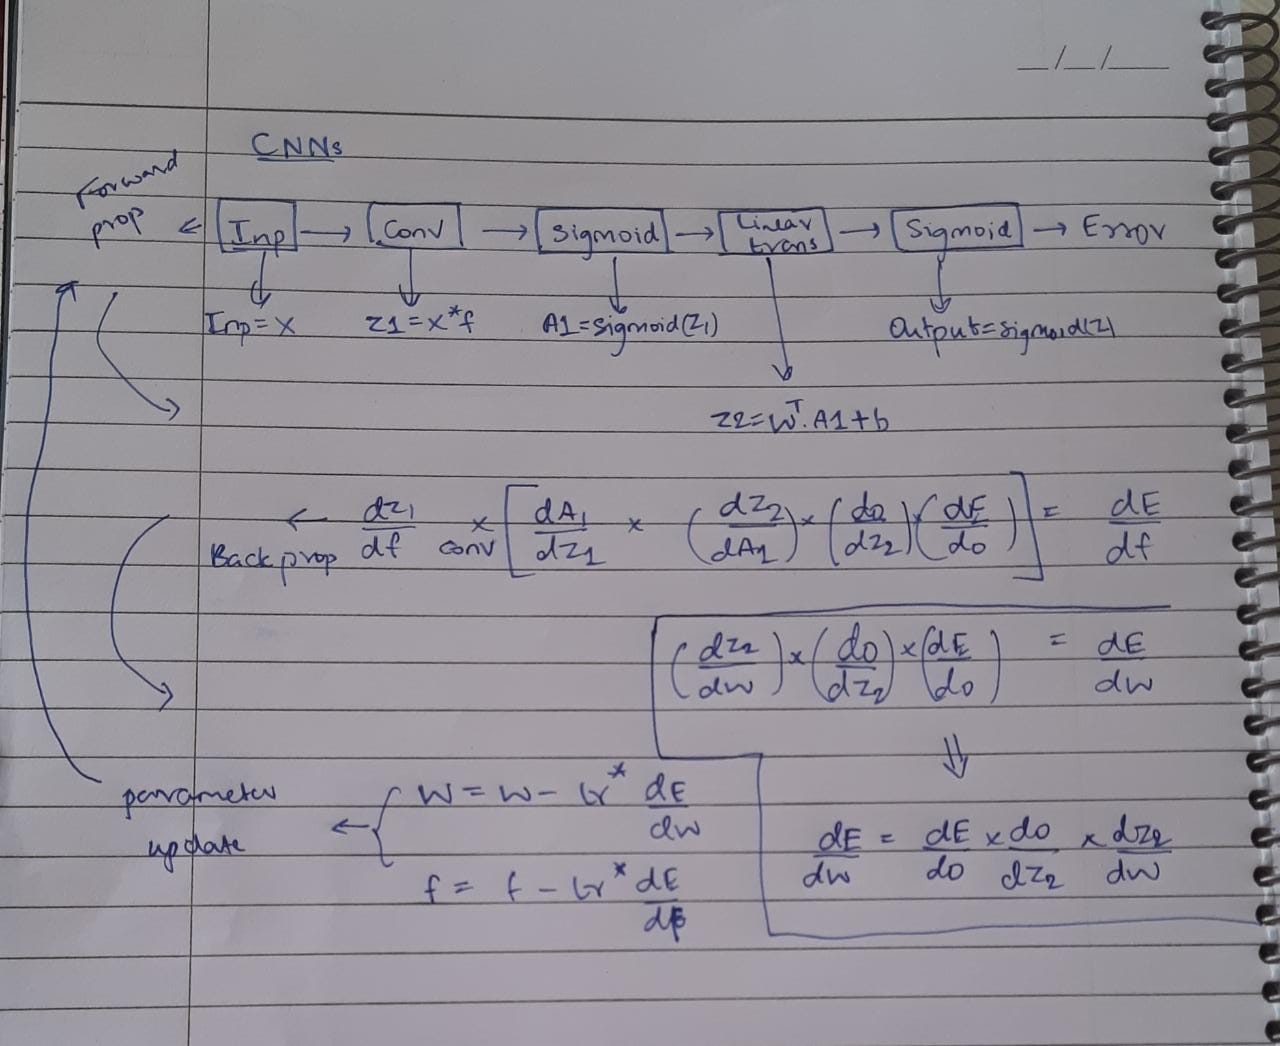 __/__/____
CNNs
Forward prop ← Inp → Conv → Sigmoid → Linear trans → Sigmoid → Error
Inp=X Z1=X*f A1=Sigmoid(Z1) Output=sigmoid(Z)
Z2=W^T.A1+b
← Back prop dZ1/df × conv [dA1/dZ1 × (dZ2/dA1) × (do/dZ2) × (dE/do)] = dE/df
(dZ2/dw) × (do/dZ2) × (dE/do) = dE/dw
⇓
parameter update ← { W = W - lr * dE/dw
f = f - lr * dE/df
dE/dw = dE/do × do/dZ2 × dZ2/dw